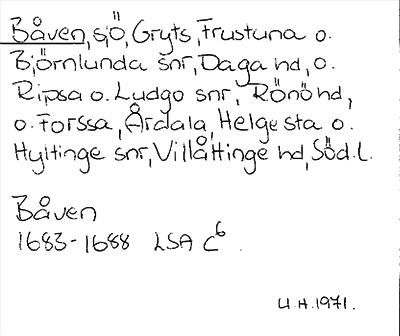 Båven, sjö, Gryts, Frustuna o.
Björnlunda snr, Daga hd, o.
Ripsa o. Ludgo snr, Rönö hd,
o. Forssa, Årdala, Helgesta o.
Hyltinge snr, Villåttinge hd, Söd. l.
Båven
1683-1688 LSA C6
U.H. 1971.